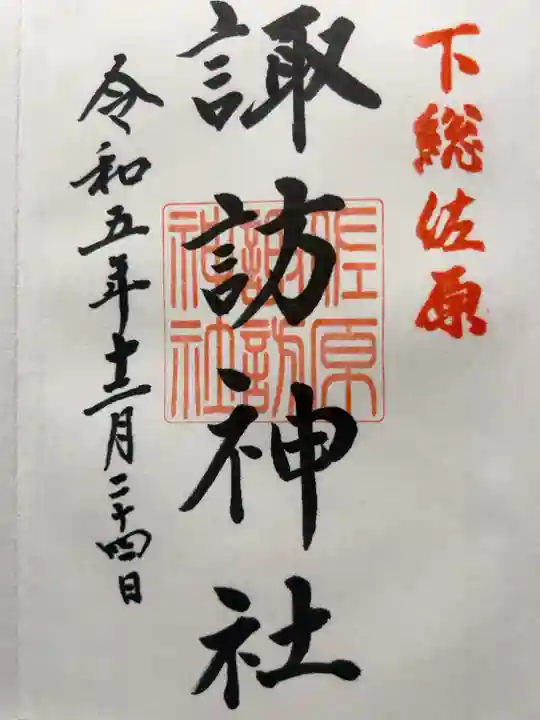 下総佐原
諏訪神社
佐原
諏訪
神社
令和五年十二月二十四日